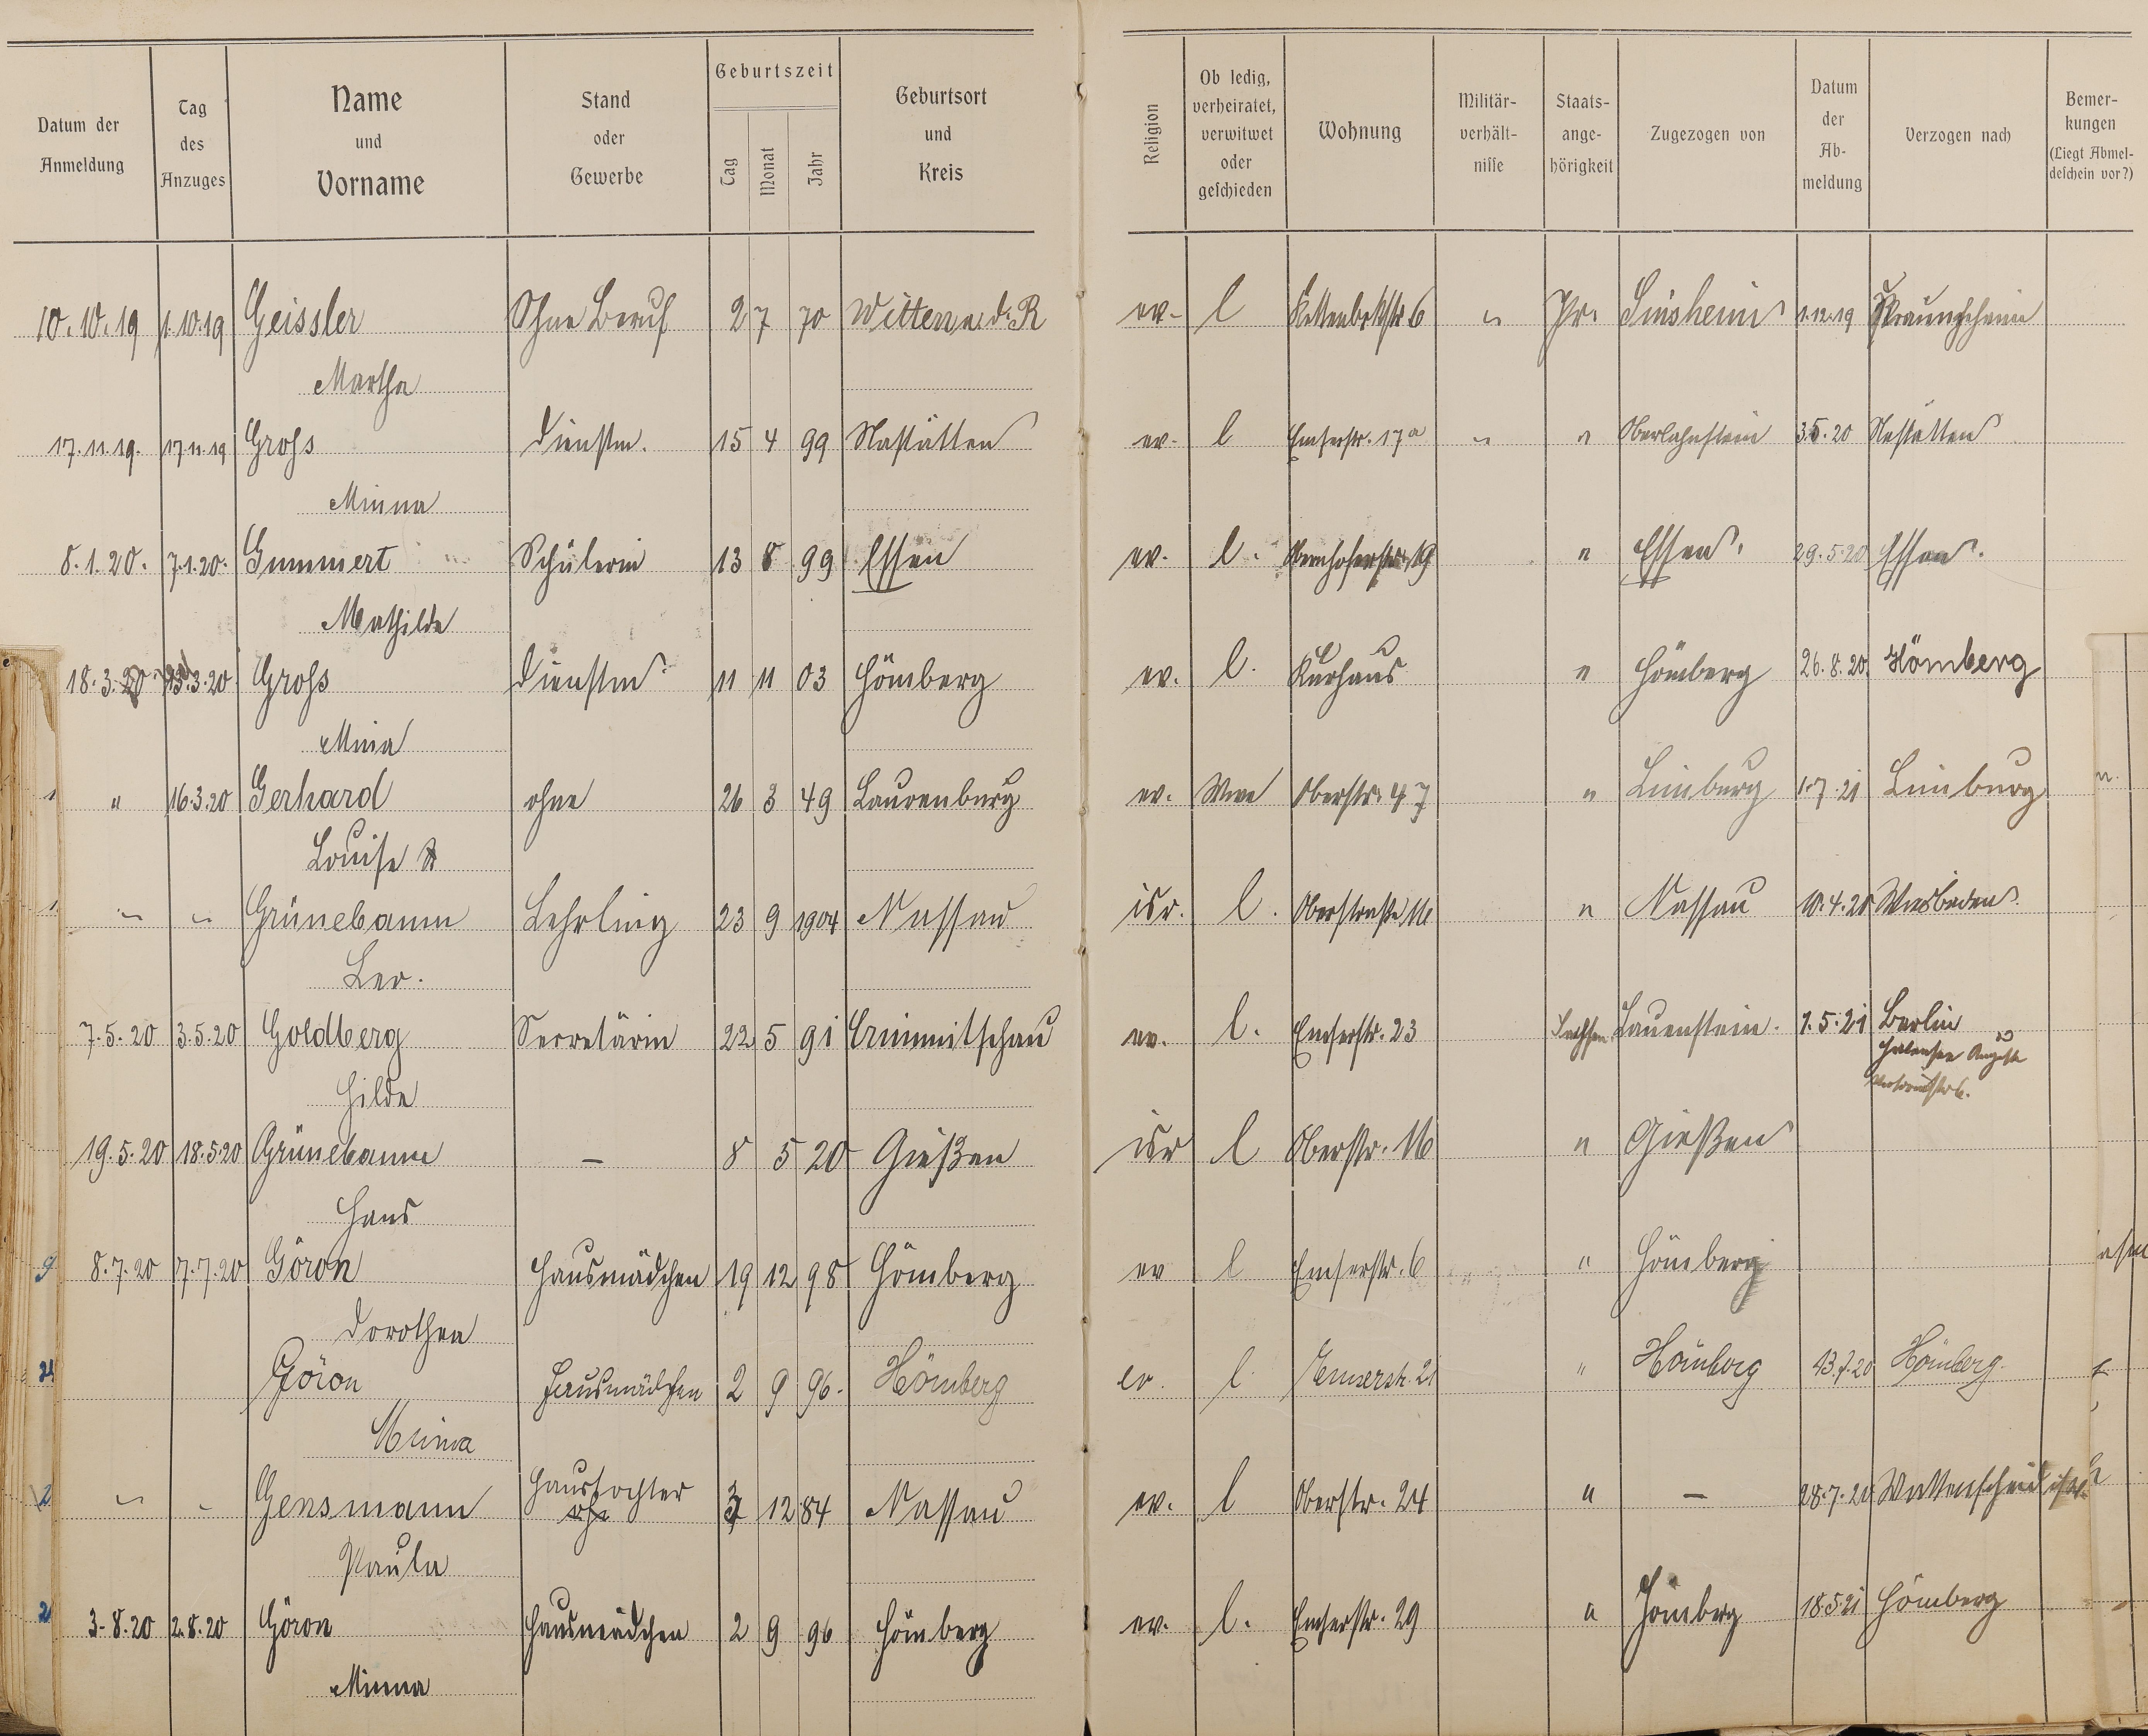 Datum der Anmeldung | Tag des Anzuges | Name und Vorname | Stand oder Gewerbe | Geburtszeit Tag Monat Jahr | Geburtsort und Kreis | Religion | Ob ledig, verheiratet, verwitwet oder geschieden | Wohnung | Militär-verhält-nisse | Staats-ange-hörigkeit | Zugezogen von | Datum der Ab-meldung | Verzogen nach | Bemer-kungen (Liegt Abmel-deschein vor?)
10.10.19 1.10.19 Geissler Ohne Beruf 2 7 70 Witten a. d. R ev. l 6 " Pr. Sinsheim 1.12.19
Martha
17.11.19. 17.11.19 Groß Dienstm. 15 4 99 Nastätten ev. l Emserstr. 17a " " Oberlahnstein 3.5.20 Nastätten
Minna
8.1.20. 7.1.20. Gummert Schülerin 13 8 99 Essen ev. l. " Essen. 29.5.20 Essen.
Mathilde
18.3.20 3.20 Groß Dienstm. 11 11 03 Hömberg ev. l. Kurhaus " Hömberg 26.8.20. Hömberg
Mina
" 16.3.20 Gerhard ohne 26 3 49 Laurenburg ev. Wwe Oberstr. 47 " Limburg 1.7.21 Limburg
Louise
" " Grünebaum Lehrling 23 9 1904 Nassau isr. l. Oberstraße " Nassau 10.4.20 Wiesbaden.
Leo.
7.5.20 3.5.20 Goldberg Secretärin 22 5 91 Crimmitschau ev. l. Emserstr. 23 Sachsen Lauenstein. 1.5.21 Berlin
Halensee
Hilde
19.5.20 18.5.20 Grünebaum — 8 5 20 Gießen isr l Oberstr. " Gießen
Hans
8.7.20 7.7.20 Göron Hausmädchen 19 12 98 Hömberg ev l Emserstr. 6 " Hömberg
Dorothea
Göron Hausmädchen 2 9 96. Hömberg ev. l. Emserstr. 21 " Hömberg 13.7.20 Hömberg.
Minna
" " Gensmann Haustochter 12 84 Nassau ev. l Oberstr. 24 " — 28.7.20 Wattenscheid
Paula
3.8.20 2.8.20 Göron Hausmädchen 2 9 96 Hömberg ev. l. Emserstr. 29 " Hömberg 18.5.21 Hömberg
Minna